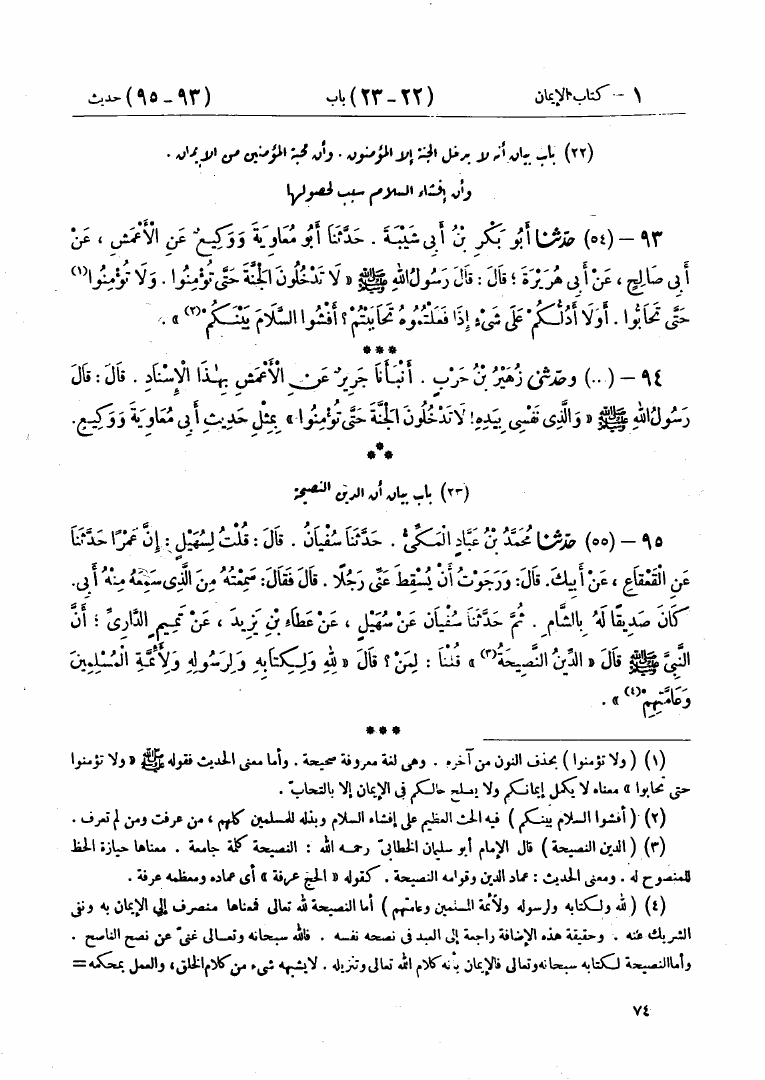 ١ - كتاب الإيمان (٢٢ - ٢٣) باب (٩٣ - ٩٥) حديث
(٢٢) باب بيان أنه لا يدخل الجنة إلا المؤمنون . وأن محبة المؤمنين من الإيمان .
وأن إفشاء السلام سبب لحصولها
٩٣ – (٥٤) حَدَّثَنَا أَبُو بَكْرِ بْنُ أَبِي شَيْبَةَ . حَدَّثَنَا أَبُو مُعَاوِيَةَ وَوَكِيعٌ عَنِ الْأَعْمَشِ ، عَنْ
أَبِي صَالِحٍ ، عَنْ أَبِي هُرَيْرَةَ ؛ قَالَ : قَالَ رَسُولُ اللهِ ﷺ « لَا تَدْخُلُونَ الْجَنَّةَ حَتَّى تُؤْمِنُوا . وَلَا تُؤْمِنُوا(١)
حَتَّى تَحَابُّوا . أَوَلَا أَدُلُّكُمْ عَلَى شَيْءٍ إِذَا فَعَلْتُمُوهُ تَحَابَبْتُمْ ؟ أَفْشُوا السَّلَامَ بَيْنَكُمْ(٢) » .
***
٩٤ – (...) وحَدَّثَنِي زُهَيْرُ بْنُ حَرْبٍ . أَنْبَأَنَا جَرِيرٌ عَنِ الْأَعْمَشِ بِهٰذَا الْإِسْنَادِ . قَالَ : قَالَ
رَسُولُ اللهِ ﷺ « وَالَّذِي نَفْسِي بِيَدِهِ ! لَا تَدْخُلُونَ الْجَنَّةَ حَتَّى تُؤْمِنُوا » بِمِثْلِ حَدِيثِ أَبِي مُعَاوِيَةَ وَوَكِيعٍ .
***
(٢٣) باب بيان أن الدين النصيحة
٩٥ – (٥٥) حَدَّثَنَا مُحَمَّدُ بْنُ عَبَّادٍ الْمَكِّيُّ . حَدَّثَنَا سُفْيَانُ . قَالَ : قُلْتُ لِسُهَيْلٍ : إِنَّ عَمْرًا حَدَّثَنَا
عَنِ الْقَعْقَاعِ ، عَنْ أَبِيكَ. قَالَ: وَرَجَوْتُ أَنْ يُسْقِطَ عَنِّي رَجُلًا . قَالَ فَقَالَ: سَمِعْتُهُ مِنَ الَّذِي سَمِعَهُ مِنْهُ أَبِي.
كَانَ صَدِيقًا لَهُ بِالشَّامِ . ثُمَّ حَدَّثَنَا سُفْيَانُ عَنْ سُهَيْلٍ ، عَنْ عَطَاءِ بْنِ يَزِيدَ ، عَنْ تَمِيمٍ الدَّارِيِّ ؛ أَنَّ
النَّبِيَّ ﷺ قَالَ « الدِّينُ النَّصِيحَةُ(٣) » قُلْنَا : لِمَنْ ؟ قَالَ « لِلهِ وَلِكِتَابِهِ وَلِرَسُولِهِ وَلِأَئِمَّةِ الْمُسْلِمِينَ
وَعَامَّتِهِمْ(٤) » .
***
(١) ( ولا تؤمنوا ) بحذف النون من آخره . وهى لغة معروفة صحيحة . وأما معنى الحديث فقوله ﷺ « ولا تؤمنوا
حتى تحابوا » معناه لا يكمل إيمانكم ولا يصلح حالكم فى الإيمان إلا بالتحابّ .
(٢) ( أفشوا السلام بينكم ) فيه الحث العظيم على إفشاء السلام وبذله للمسلمين كلهم ، من عرفت ومن لم تعرف .
(٣) ( الدين النصيحة ) قال الإمام أبو سليمان الخطابىّ رحمه الله : النصيحة كلمة جامعة . معناها حيازة الحظ
للمنصوح له . ومعنى الحديث : عماد الدين وقوامه النصيحة . كقوله « الحج عرفة » أى عماده ومعظمه عرفة .
(٤) ( لله ولكتابه ولرسوله ولأئمة المسلمين وعامتهم ) أما النصيحة لله تعالى فمعناها منصرف إلى الإيمان به ونفى
الشريك عنه . وحقيقة هذه الإضافة راجعة إلى العبد فى نصحه نفسه . فالله سبحانه وتعالى غنىّ عن نصح الناصح .
وأما النصيحة لكتابه سبحانه وتعالى فالإيمان بأنه كلام الله تعالى وتنزيله . لا يشبهه شىء من كلام الخلق، والعمل بمحكمه =
٧٤